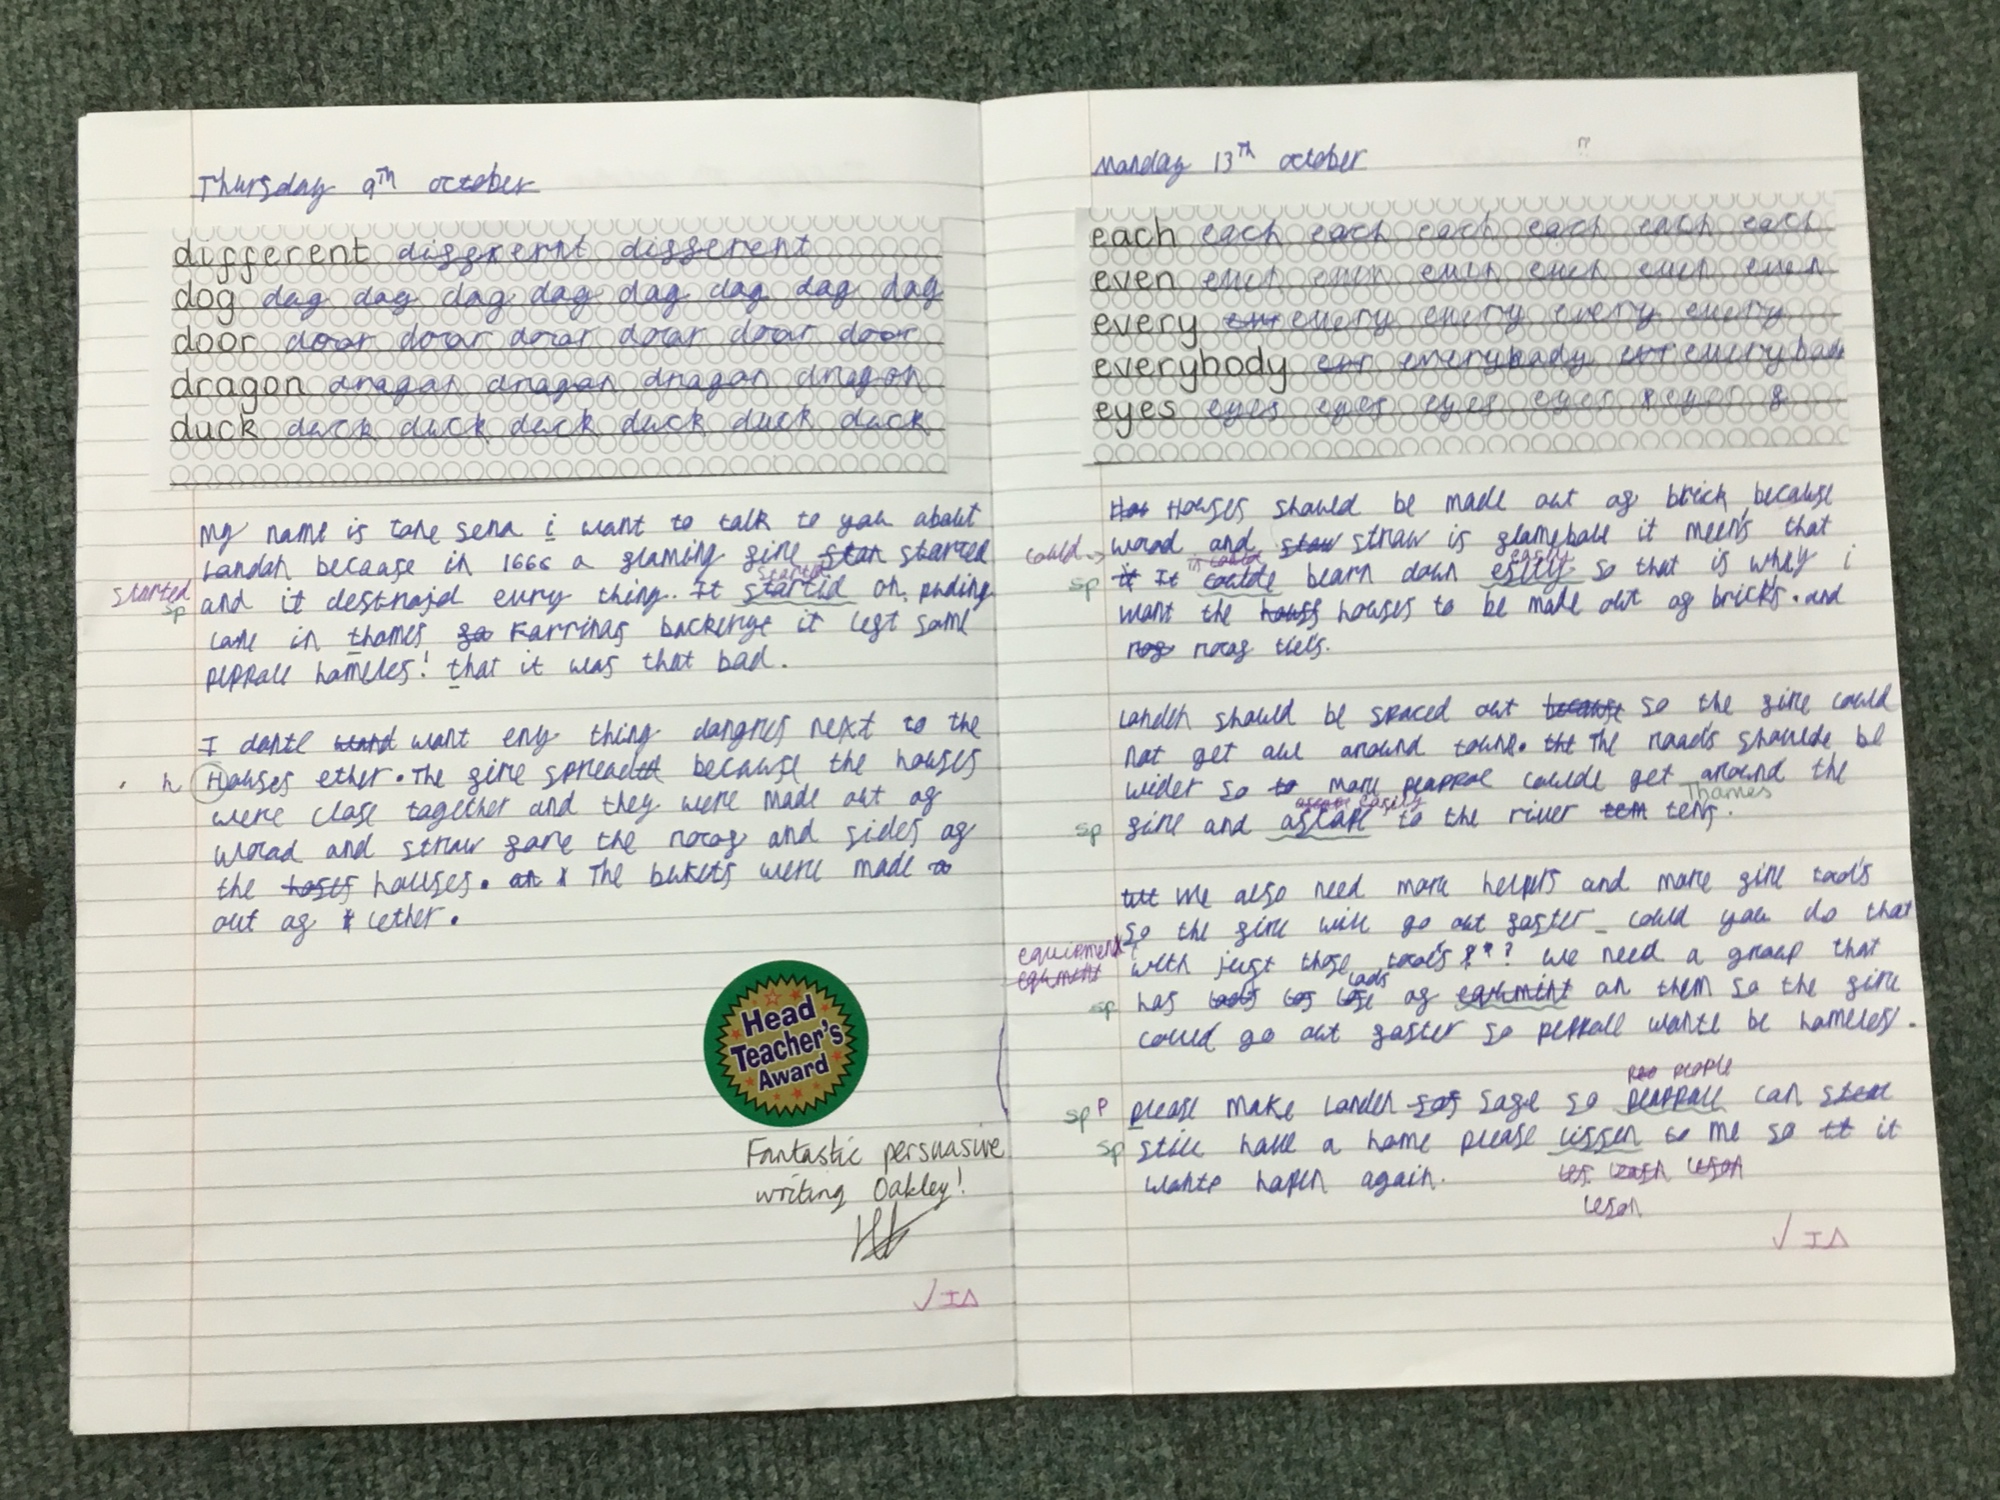 Thursday 9th october
different different different
dog dog dog dog dog dog dog dog dog
door door door door door door door
dragon dragon dragon dragon dragon
duck duck duck duck duck duck duck
My name is i want to talk to you about
London because in 1666 a flaming fire started
started
started
sp and it destrojd every thing. It startid on puding
lane in thomes Farrinas backerye it left some
pepole homeles! that it was that bad.
I donte want eny thing dangres next to the
h Houses ether. The fire spread because the houses
were close together and they were made out of
wood and straw for the roof and sides of
the houses. The bukets were made
out of lether.
Head
Teacher's
Award
Fantastic persuasive
writing Oakley!
√ I△
Monday 13th october
each each each each each each each
even even even even even even even
every every every every every
everybody everybody everybody
eyes eyes eyes eyes eyes eyes
Houses should be made out of brick because
could wood and straw is flamebale it meens that
could easily
sp It coulde bearn down esity so that is why i
want the houses to be made out of bricks. and
roof tiels.
London should be spaced out so the fire could
not get all around towne. The roads shoulde be
wider so more peappol coulde get around the
escape easily Thames
sp fire and ascape to the river tems.
We also need more helpers and more fire tools
so the fire will go out faster could you do that
equipment with just those tools? we need a groep that
loads
sp has of equmint on them so the fire
could go out faster so pepole wonte be homeles.
people
sp P please make London safe so peappole can
sp still have a home please lissen to me so it
wonte hapen again.
leson
√ I△